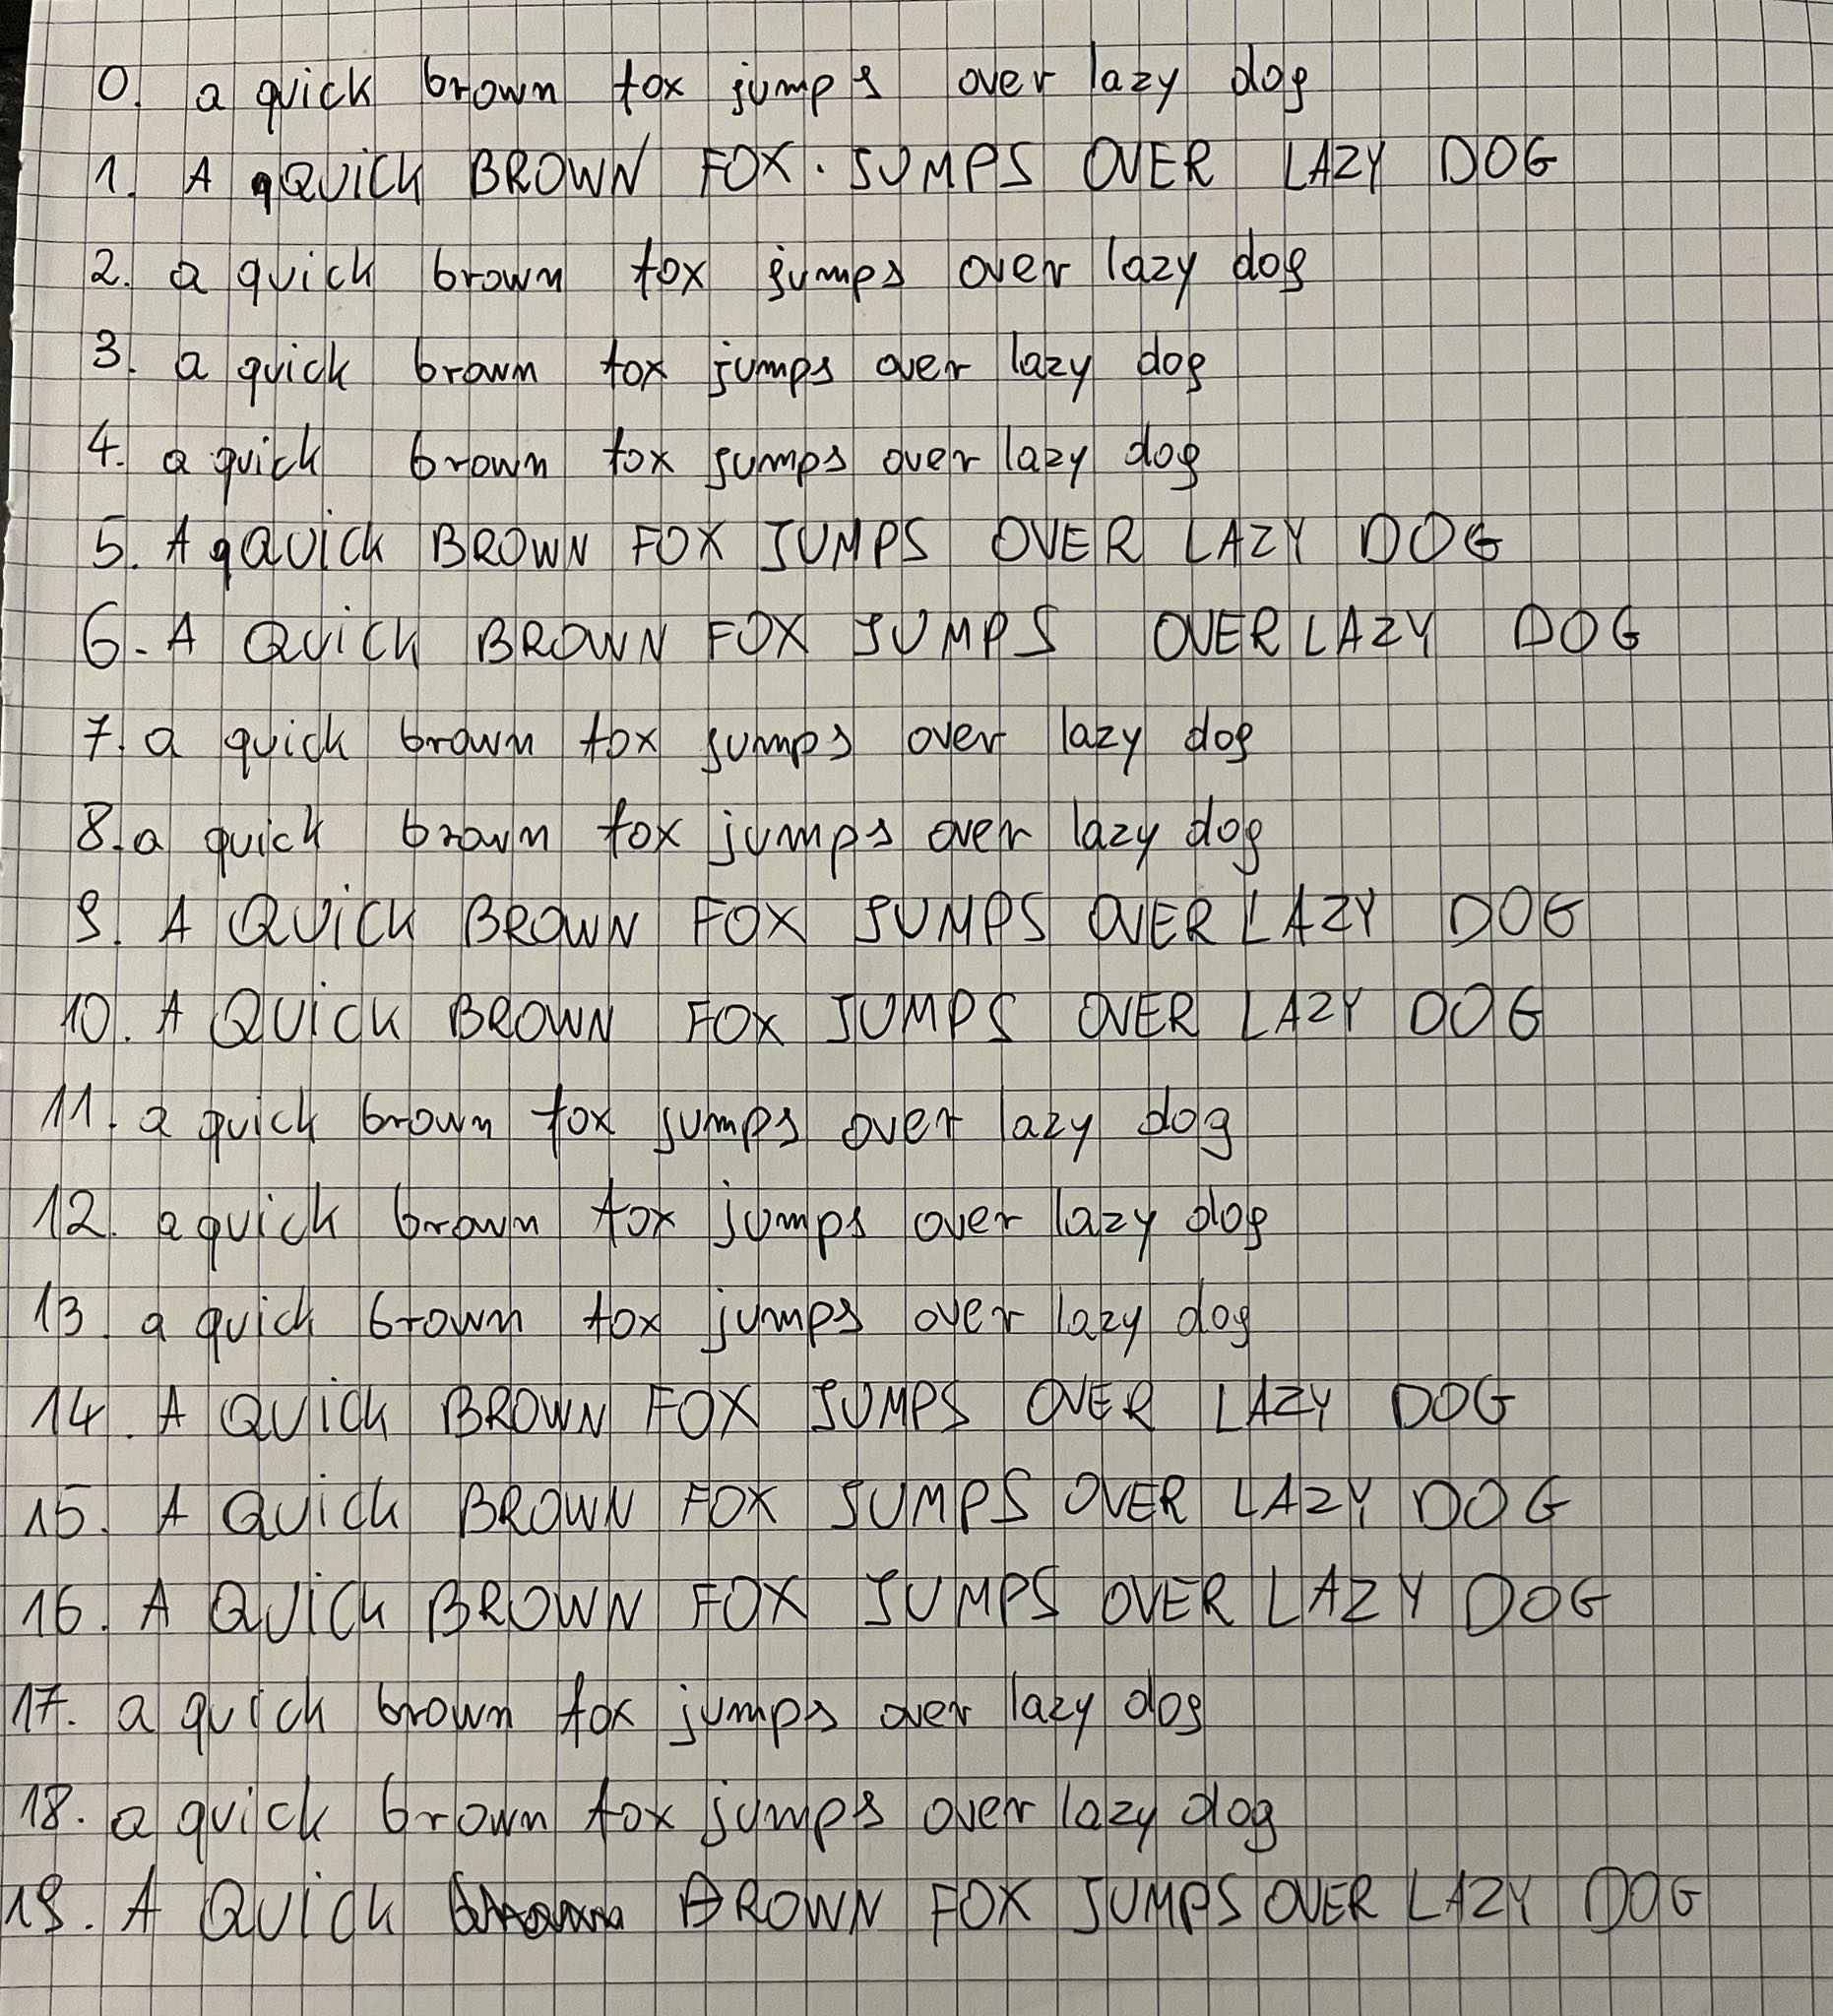 0. a quick brown fox jumps over lazy dog
1. A qQUiCK BROWN FOX. JUMPS OVER LAZY DOG
2. a quick brown fox jumps over lazy dog
3. a quick brown fox jumps over lazy dog
4. a quick brown fox jumps over lazy dog
5. A qQUICK BROWN FOX JUMPS OVER LAZY DOG
6. A QUiCK BROWN FOX JUMPS OVER LAZY DOG
7. a quick brown fox jumps over lazy dog
8. a quick brown fox jumps over lazy dog
9. A QUiCK BROWN FOX JUMPS OVER LAZY DOG
10. A QUiCK BROWN FOX JUMPS OVER LAZY DOG
11. a quick brown fox jumps over lazy dog
12. a quick brown fox jumps over lazy dog
13. a quick brown fox jumps over lazy dog
14. A QUiCK BROWN FOX JUMPS OVER LAZY DOG
15. A QUiCK BROWN FOX JUMPS OVER LAZY DOG
16. A QUiCK BROWN FOX JUMPS OVER LAZY DOG
17. a quick brown fox jumps over lazy dog
18. a quick brown fox jumps over lazy dog
19. A QUICK BROWN FOX JUMPS OVER LAZY DOG